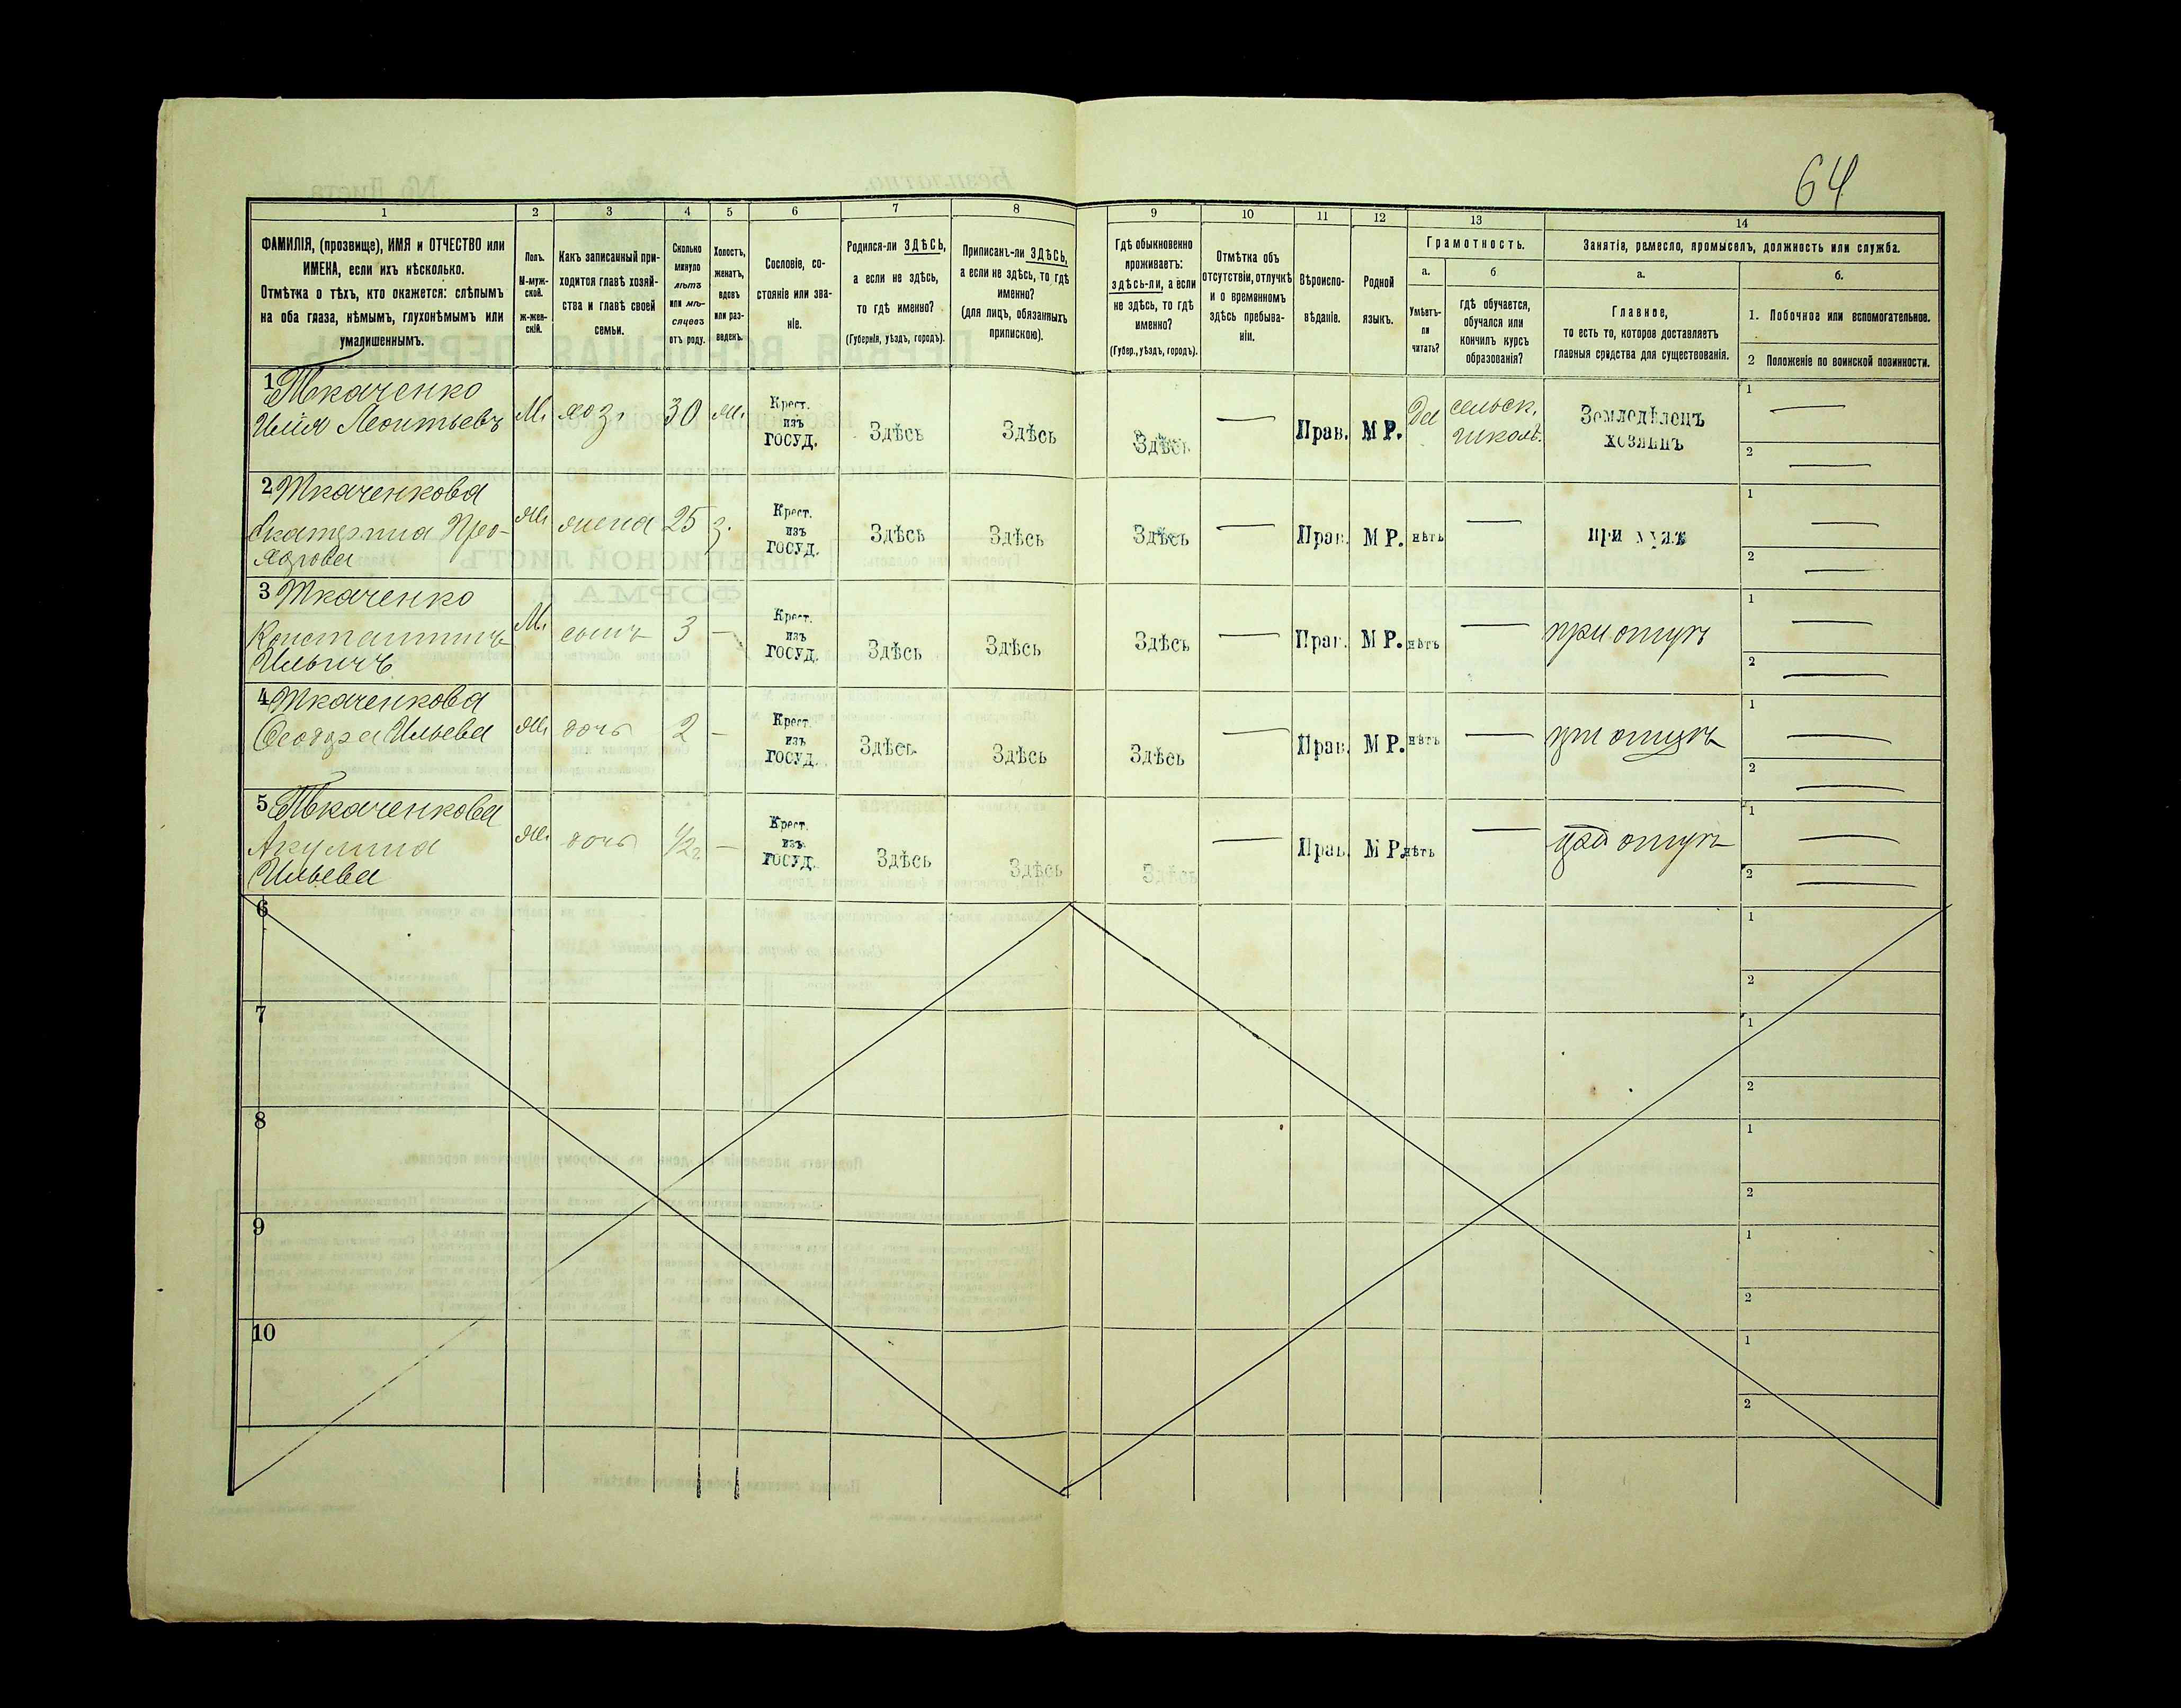 64
1 2 3 4 5 6 7 8 9 10 11 12 13 14
ФАМИЛІЯ, (прозвище), ИМЯ и ОТЧЕСТВО или
ИМЕНА, если ихъ нѣсколько.
Отмѣтка о тѣхъ, кто окажется: слѣпымъ
на оба глаза, нѣмымъ, глухонѣмымъ или
умалишеннымъ.
Полъ.
М-муж-
ской.
ж-жен-
скій.
Какъ записанный при-
ходится главѣ хозяй-
ства и главѣ своей
семьи.
Сколько
минуло
лѣтъ
или мѣ-
сяцевъ
отъ роду.
Холостъ,
женатъ,
вдовъ
или раз-
веденъ.
Сословіе, со-
стояніе или зва-
ніе.
Родился-ли ЗДѢСЬ,
а если не здѣсь,
то гдѣ именно?
(Губернія, уѣздъ, городъ).
Приписанъ-ли ЗДѢСЬ,
а если не здѣсь, то гдѣ
именно?
(для лицъ, обязанныхъ
припискою).
Гдѣ обыкновенно
проживаетъ:
здѣсь-ли, а если
не здѣсь, то гдѣ
именно?
(Губер., уѣздъ, городъ).
Отмѣтка объ
отсутствіи, отлучкѣ
и о временномъ
здѣсь пребыва-
ніи.
Вѣроиспо-
вѣданіе.
Родной
языкъ.
Грамотность.
а.
Умѣетъ-
ли
читать?
б
гдѣ обучается,
обучался или
кончилъ курсъ
образованія?
Занятіе, ремесло, промыселъ, должность или служба.
а.
Главное,
то есть то, которое доставляетъ
главныя средства для существованія.
б.
1. Побочное или вспомогательное.
2 Положеніе по воинской повинности.
1 Ткаченко
Илія Леонтьевъ М. хоз. 30 ж. Крест. изъ ГОСУД. Здѣсь Здѣсь Здѣсь — Прав. М Р. Да сельск. школѣ. Земледѣлецъ хозяинъ 1 — 2 —
2 Ткаченкова
Екатерина
ж. жена 25 з. Крест. изъ ГОСУД. Здѣсь Здѣсь Здѣсь — Прав. М Р. нѣтъ — при мужѣ 1 — 2 —
3 Ткаченко
Константинъ
Ильичъ М. сынъ 3 — Крест. изъ ГОСУД. Здѣсь Здѣсь Здѣсь — Прав. М Р. нѣтъ — при отцѣ 1 — 2 —
4 Ткаченкова
Ѳеодора Ильева ж. дочь 2 — Крест. изъ ГОСУД. Здѣсь Здѣсь Здѣсь — Прав. М Р. нѣтъ — при отцѣ 1 — 2 —
5 Ткаченкова
Акулина
Ильева ж. дочь 1/2 г — Крест. изъ ГОСУД. Здѣсь Здѣсь Здѣсь — Прав. М Р. нѣтъ — при отцѣ 1 — 2 —
6 1 2
7 1 2
8 1 2
9 1 2
10 1 2